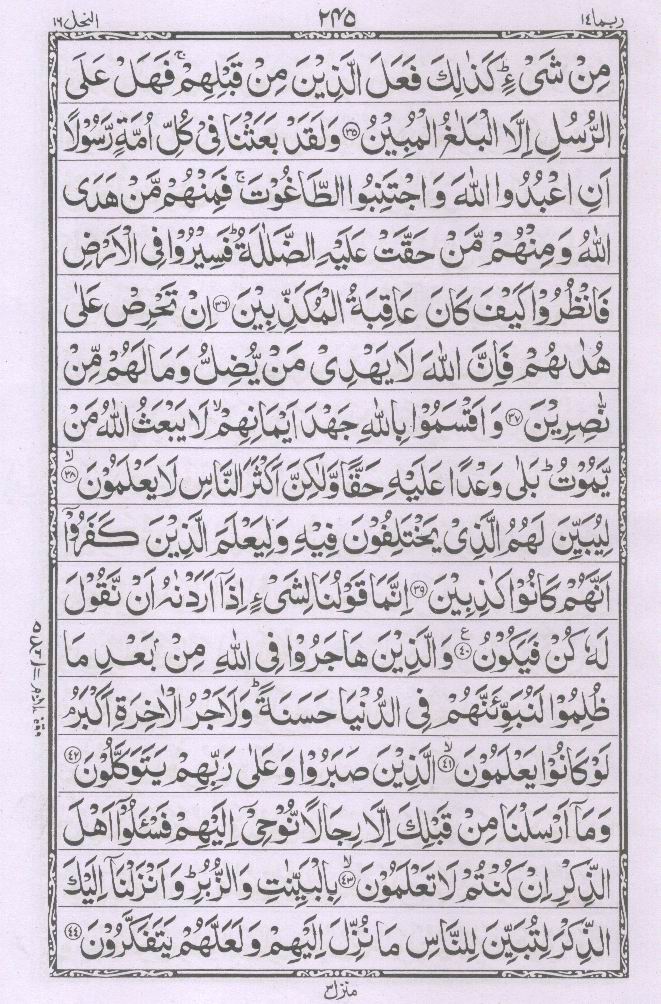 ربما ١٤
٢٤٥
النحل ١٦
مِنْ شَیْءٍ ؕ كَذٰلِكَ فَعَلَ الَّذِیْنَ مِنْ قَبْلِهِمْ ۚ فَهَلْ عَلَی
الرُّسُلِ اِلَّا الْبَلٰغُ الْمُبِیْنُ ۝٣٥ وَلَقَدْ بَعَثْنَا فِیْ كُلِّ اُمَّةٍ رَّسُوْلًا
اَنِ اعْبُدُوا اللّٰهَ وَاجْتَنِبُوا الطَّاغُوْتَ ۚ فَمِنْهُمْ مَّنْ هَدَی
اللّٰهُ وَمِنْهُمْ مَّنْ حَقَّتْ عَلَیْهِ الضَّلٰلَةُ ؕ فَسِیْرُوْا فِی الْاَرْضِ
فَانْظُرُوْا كَیْفَ كَانَ عَاقِبَةُ الْمُكَذِّبِیْنَ ۝٣٦ اِنْ تَحْرِصْ عَلٰی
هُدٰىهُمْ فَاِنَّ اللّٰهَ لَا یَهْدِیْ مَنْ یُّضِلُّ وَمَا لَهُمْ مِّنْ
نّٰصِرِیْنَ ۝٣٧ وَاَقْسَمُوْا بِاللّٰهِ جَهْدَ اَیْمَانِهِمْ ۙ لَا یَبْعَثُ اللّٰهُ مَنْ
یَّمُوْتُ ؕ بَلٰی وَعْدًا عَلَیْهِ حَقًّا وَّلٰكِنَّ اَكْثَرَ النَّاسِ لَا یَعْلَمُوْنَ ۙ۝٣٨
لِیُبَیِّنَ لَهُمُ الَّذِیْ یَخْتَلِفُوْنَ فِیْهِ وَلِیَعْلَمَ الَّذِیْنَ كَفَرُوْۤا
اَنَّهُمْ كَانُوْا كٰذِبِیْنَ ۝٣٩ اِنَّمَا قَوْلُنَا لِشَیْءٍ اِذَاۤ اَرَدْنٰهُ اَنْ نَّقُوْلَ
لَهٗ كُنْ فَیَكُوْنُ ۝٤٠ ع وَالَّذِیْنَ هَاجَرُوْا فِی اللّٰهِ مِنْۢ بَعْدِ مَا
ظُلِمُوْا لَنُبَوِّئَنَّهُمْ فِی الدُّنْیَا حَسَنَةً ؕ وَلَاَجْرُ الْاٰخِرَةِ اَكْبَرُ ۘ
لَوْ كَانُوْا یَعْلَمُوْنَ ۙ۝٤١ الَّذِیْنَ صَبَرُوْا وَعَلٰی رَبِّهِمْ یَتَوَكَّلُوْنَ ۝٤٢
وَمَاۤ اَرْسَلْنَا مِنْ قَبْلِكَ اِلَّا رِجَالًا نُّوْحِیْۤ اِلَیْهِمْ فَسْـَٔلُوْۤا اَهْلَ
الذِّكْرِ اِنْ كُنْتُمْ لَا تَعْلَمُوْنَ ۙ۝٤٣ بِالْبَیِّنٰتِ وَالزُّبُرِ ؕ وَاَنْزَلْنَاۤ اِلَیْكَ
الذِّكْرَ لِتُبَیِّنَ لِلنَّاسِ مَا نُزِّلَ اِلَیْهِمْ وَلَعَلَّهُمْ یَتَفَكَّرُوْنَ ۝٤٤
منزل ٣